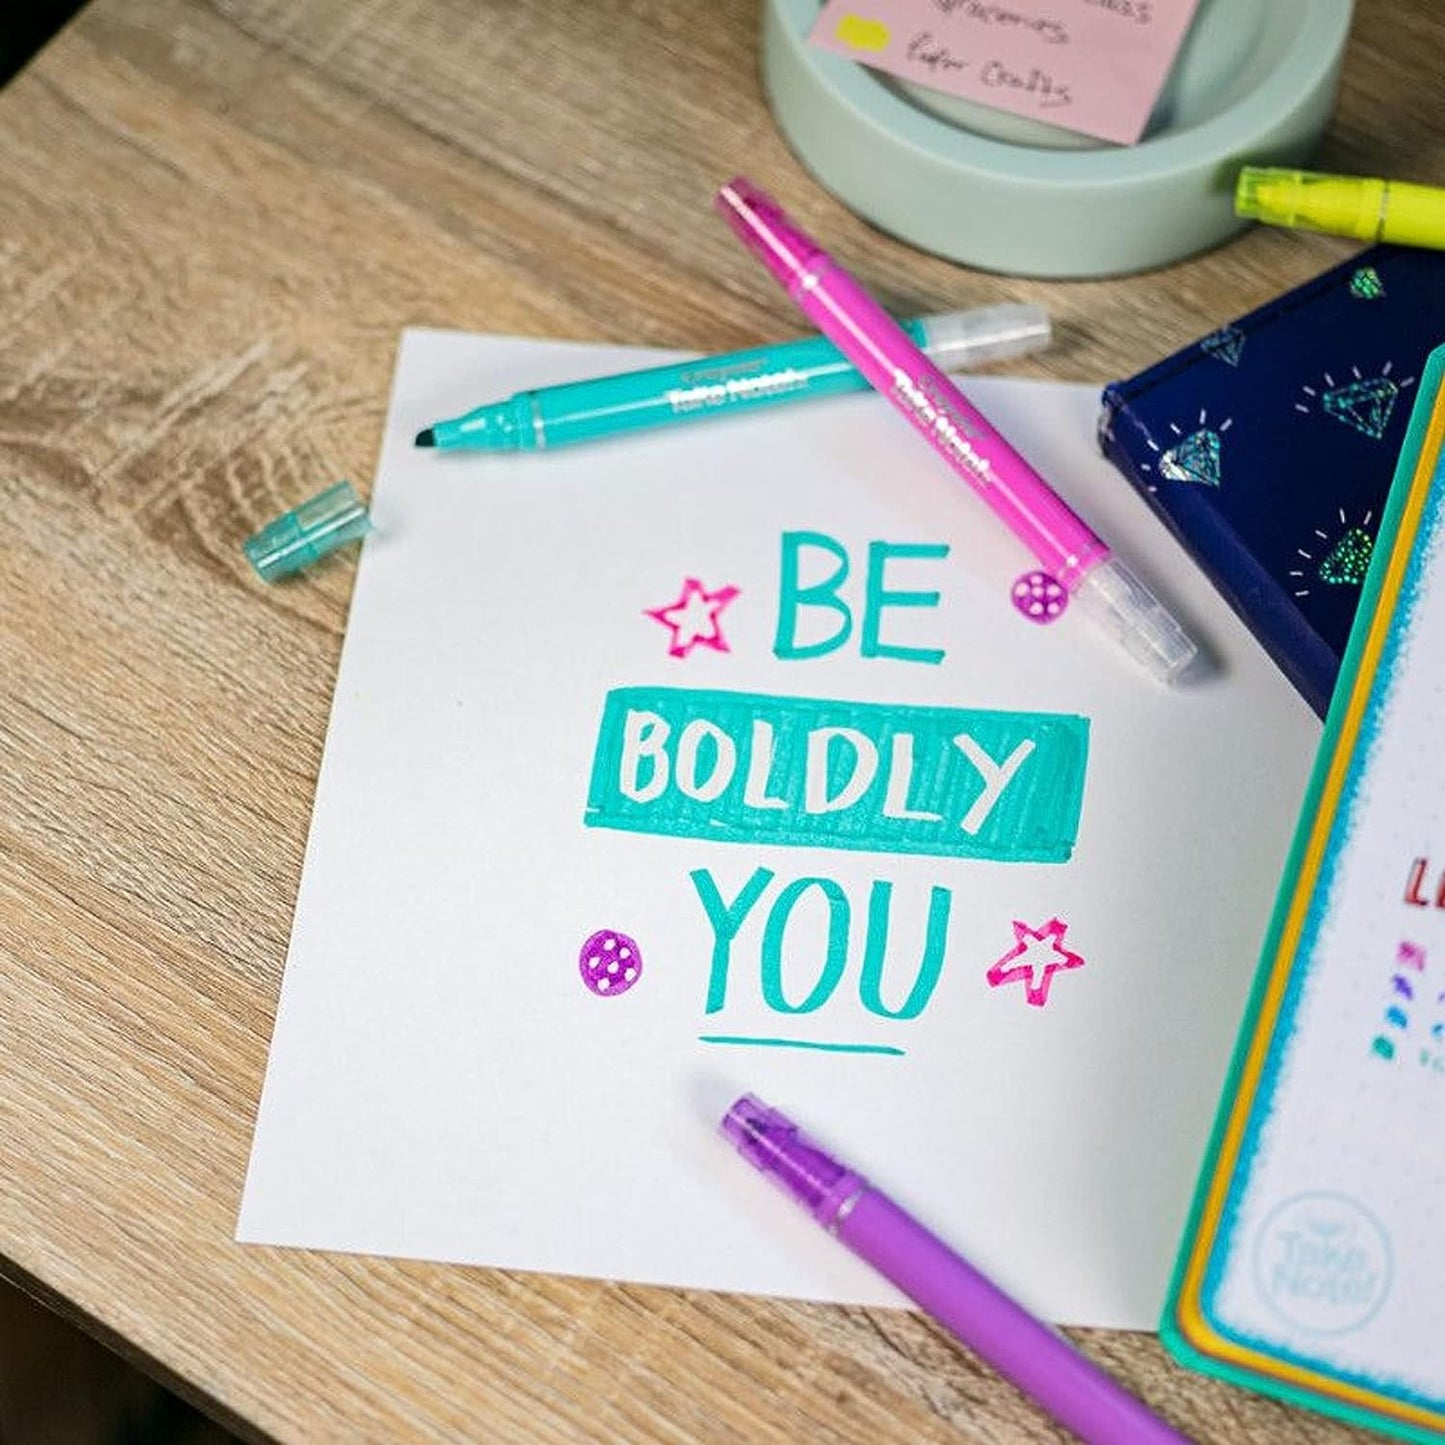 groceries
Color Crafts
Crayola
Take Note!
Crayola
Take Note!
BE
BOLDLY
YOU
Take
Note!